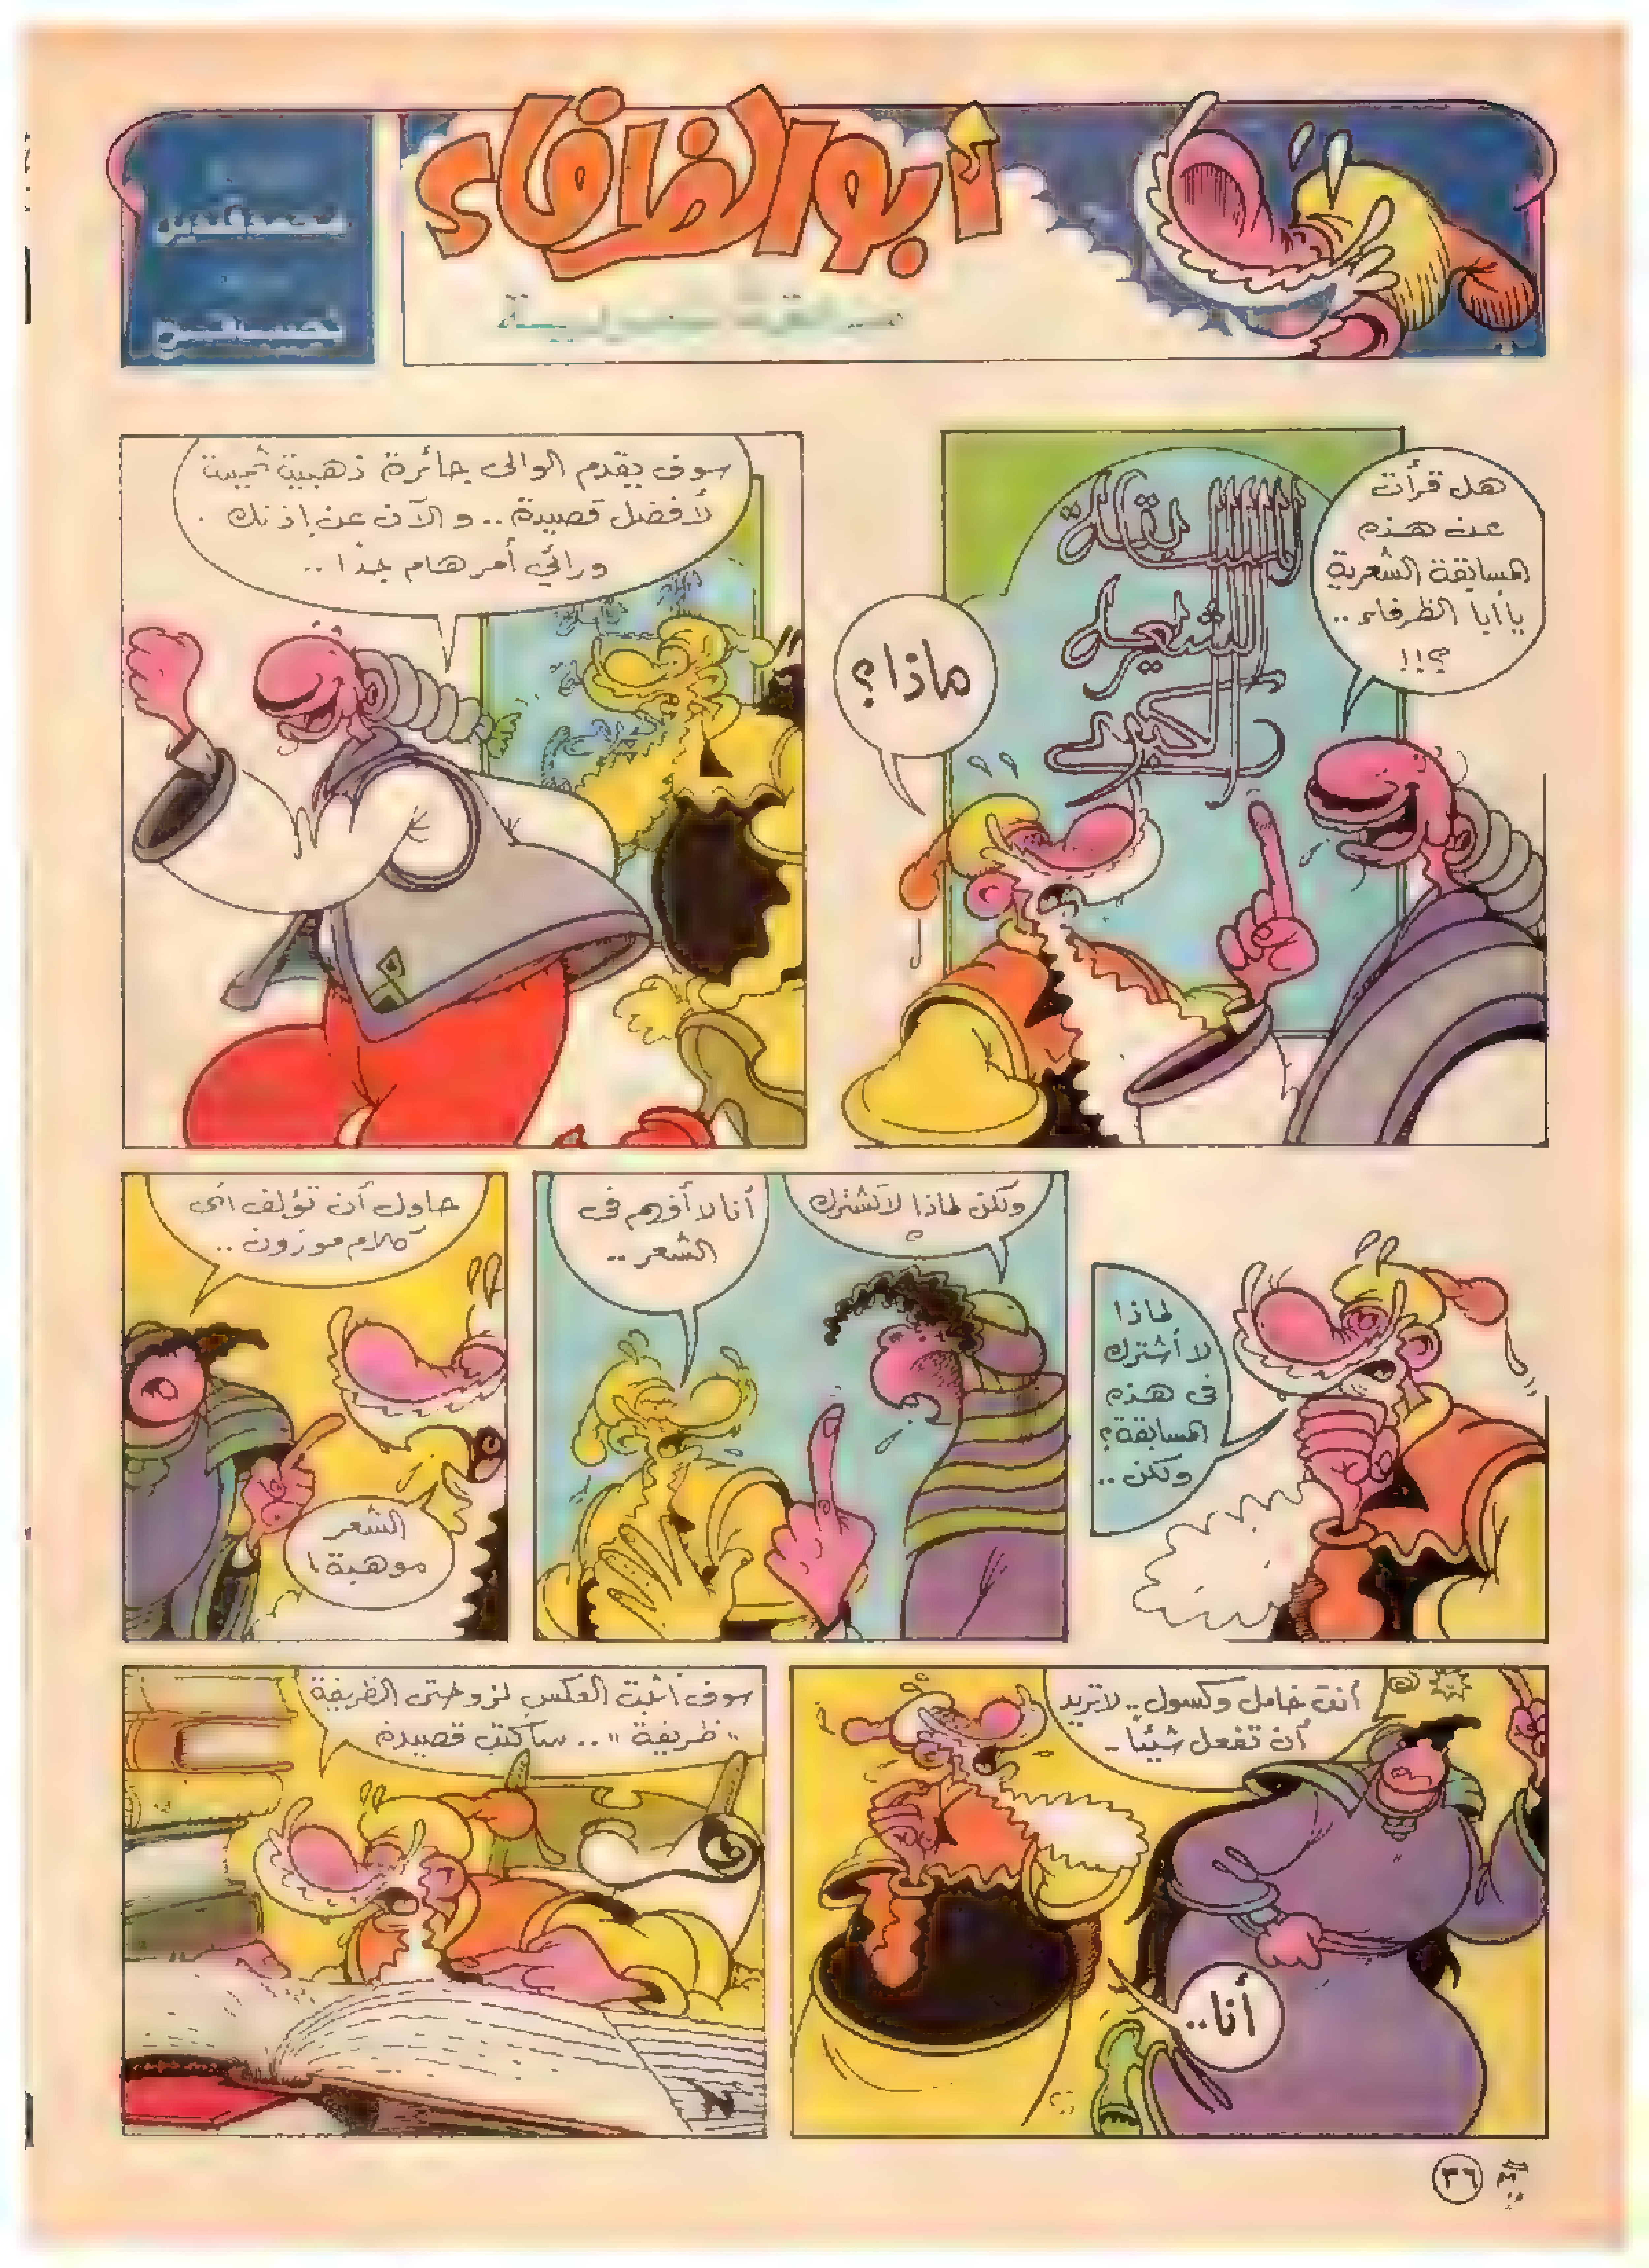 أبو الظرفاء
مسابقة شعرية
هل قرأت
عن هذه
المسابقة الشعرية
يا أبا الظرفاء..
؟!!
المسابقة
الشعرية
الكبرى
ماذا؟
سوف يقدم الوالى جائزة ذهبية ثمينة
لأفضل قصيدة.. والآن عن إذنك.
ورائي أمر هام جدًا..
لماذا
لا أشترك
فى هذه
المسابقة؟
ولكن..
ولكن لماذا لا تشترك
؟
أنا لا أفهم فى
الشعر..
حاول أن تؤلف أى
كلام موزون..
الشعر
موهبة!
أنت خامل وكسول.. لا تريد
أن تفعل شيئًا..
أنا..
سوف أثبت العكس لزوجتى الظريفة
"ظريفة".. سأكتب قصيدة
٣٦